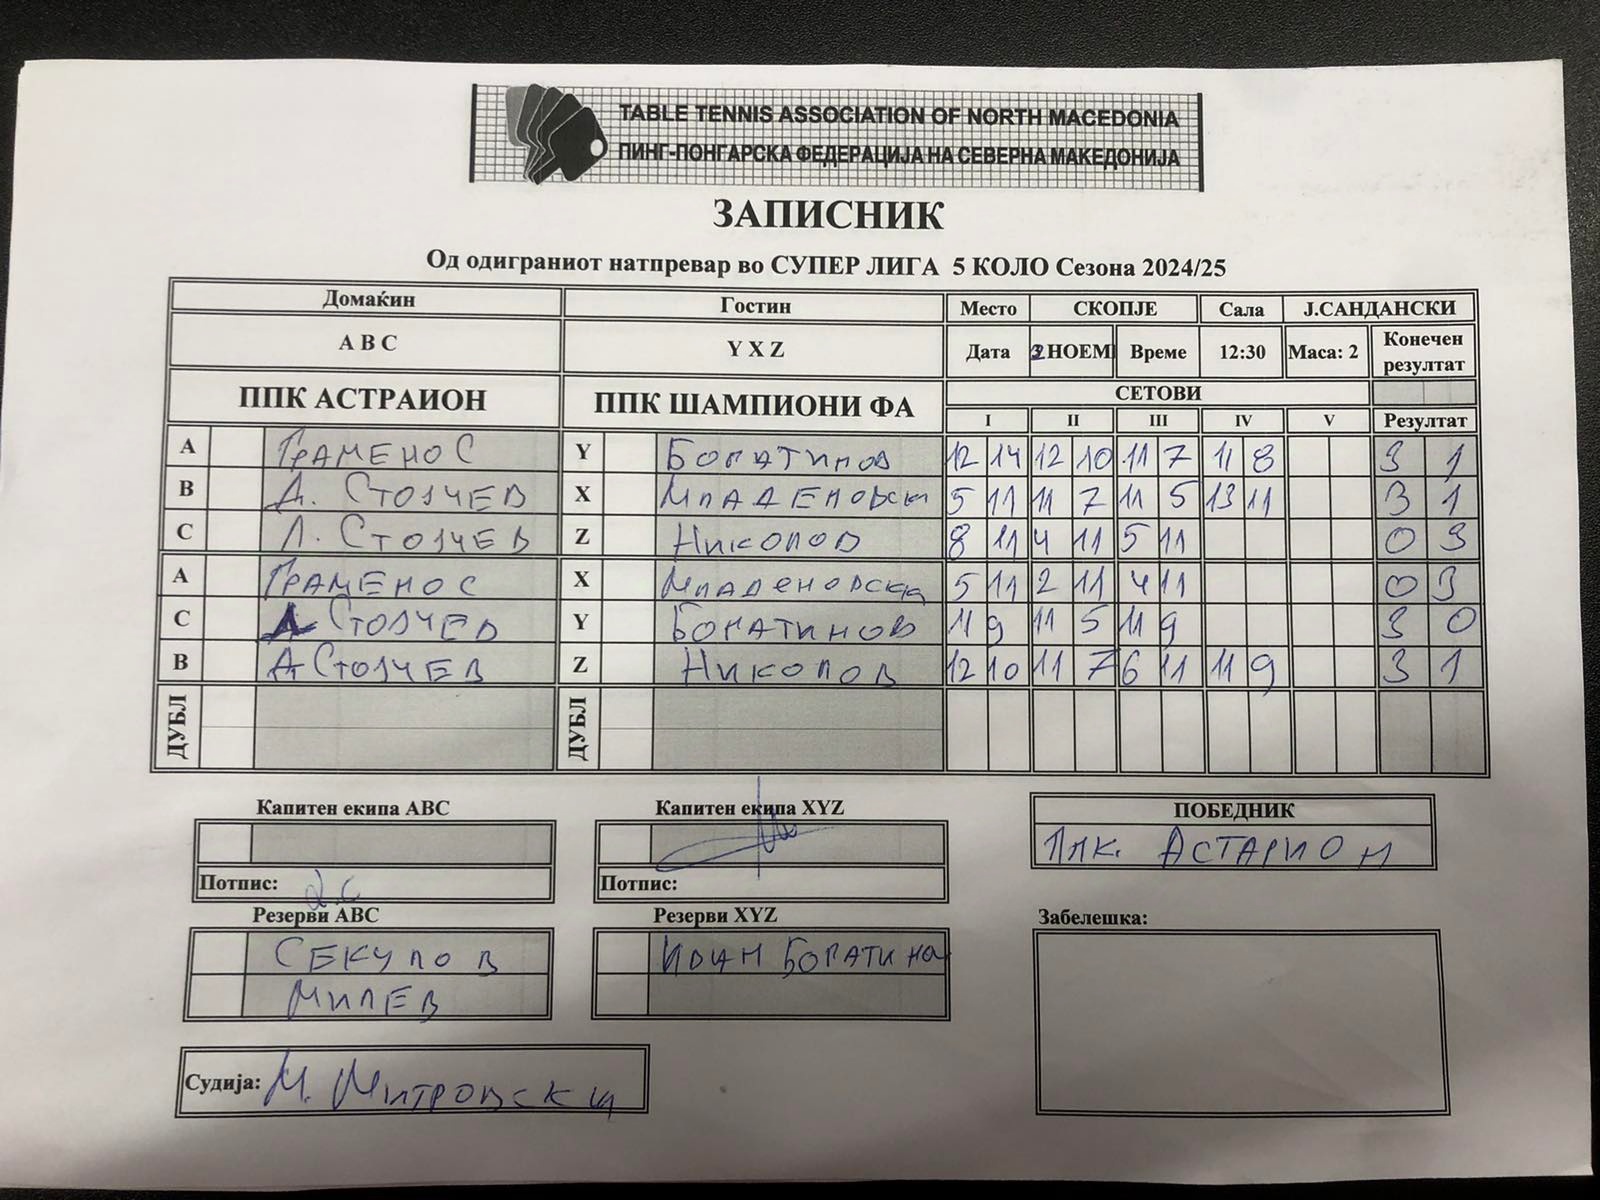 TABLE TENNIS ASSOCIATION OF NORTH MACEDONIA
ПИНГ-ПОНГАРСКА ФЕДЕРАЦИЈА НА СЕВЕРНА МАКЕДОНИЈА
ЗАПИСНИК
Од одиграниот натпревар во СУПЕР ЛИГА 5 КОЛО Сезона 2024/25
Домаќин Гостин Место СКОПЈЕ Сала Ј.САНДАНСКИ
A B C Y X Z Дата НОЕМ Време 12:30 Маса: 2 Конечен резултат
ППК АСТРАИОН ППК ШАМПИОНИ ФА СЕТОВИ
I II III IV V Резултат
A ГРАМЕНОС Y БОГАТИНОВ 12 14 12 10 11 7 11 8 3 1
B Д. СТОЈЧЕВ X МЛАДЕНОВСКИ 5 11 11 7 11 5 13 11 3 1
C Л. СТОЈЧЕВ Z НИКОЛОВ 8 11 4 11 5 11 0 3
A ГРАМЕНОС X МЛАДЕНОВСКИ 5 11 2 11 4 11 0 3
C СТОЈЧЕВ Y БОГАТИНОВ 11 9 11 5 11 9 3 0
B Д СТОЈЧЕВ Z НИКОЛОВ 12 10 11 7 6 11 11 9 3 1
ДУБЛ ДУБЛ
Капитен екипа ABC Капитен екипа XYZ ПОБЕДНИК
ППК. АСТАРИОН
Потпис: Потпис:
Резерви ABC Резерви XYZ Забелешка:
СЕКУЛОВ ИВАН БОГАТИНОВ
МИЛЕВ
Судија: М. МИТРОВСКИ